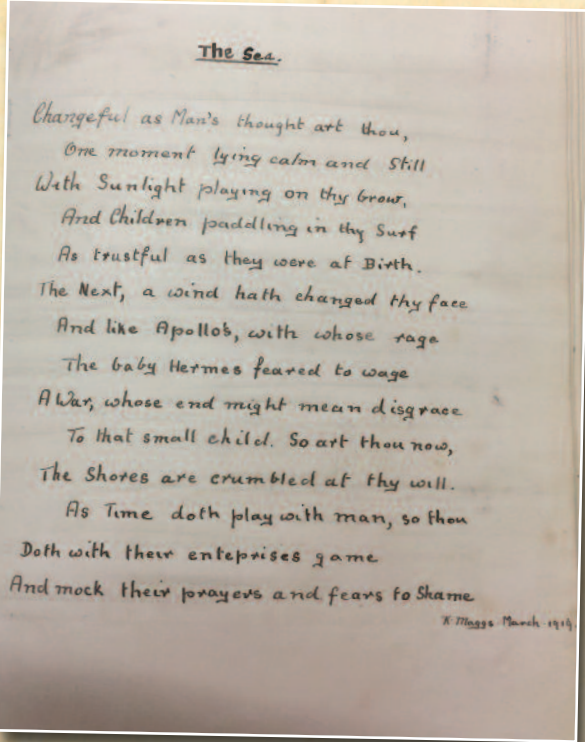 The Sea.
Changeful as Man's thought art thou,
One moment lying calm and Still
With Sunlight playing on thy brow,
And Children paddling in thy Surf
As trustful as they were at Birth.
The Next, a wind hath changed thy face
And like Apollo's, with whose rage
The baby Hermes feared to wage
A War, whose end might mean disgrace
To that small child. So art thou now,
The Shores are crumbled at thy will.
As Time doth play with man, so thou
Doth with their enteprises game
And mock their prayers and fears to Shame
K Maggs March 1919.